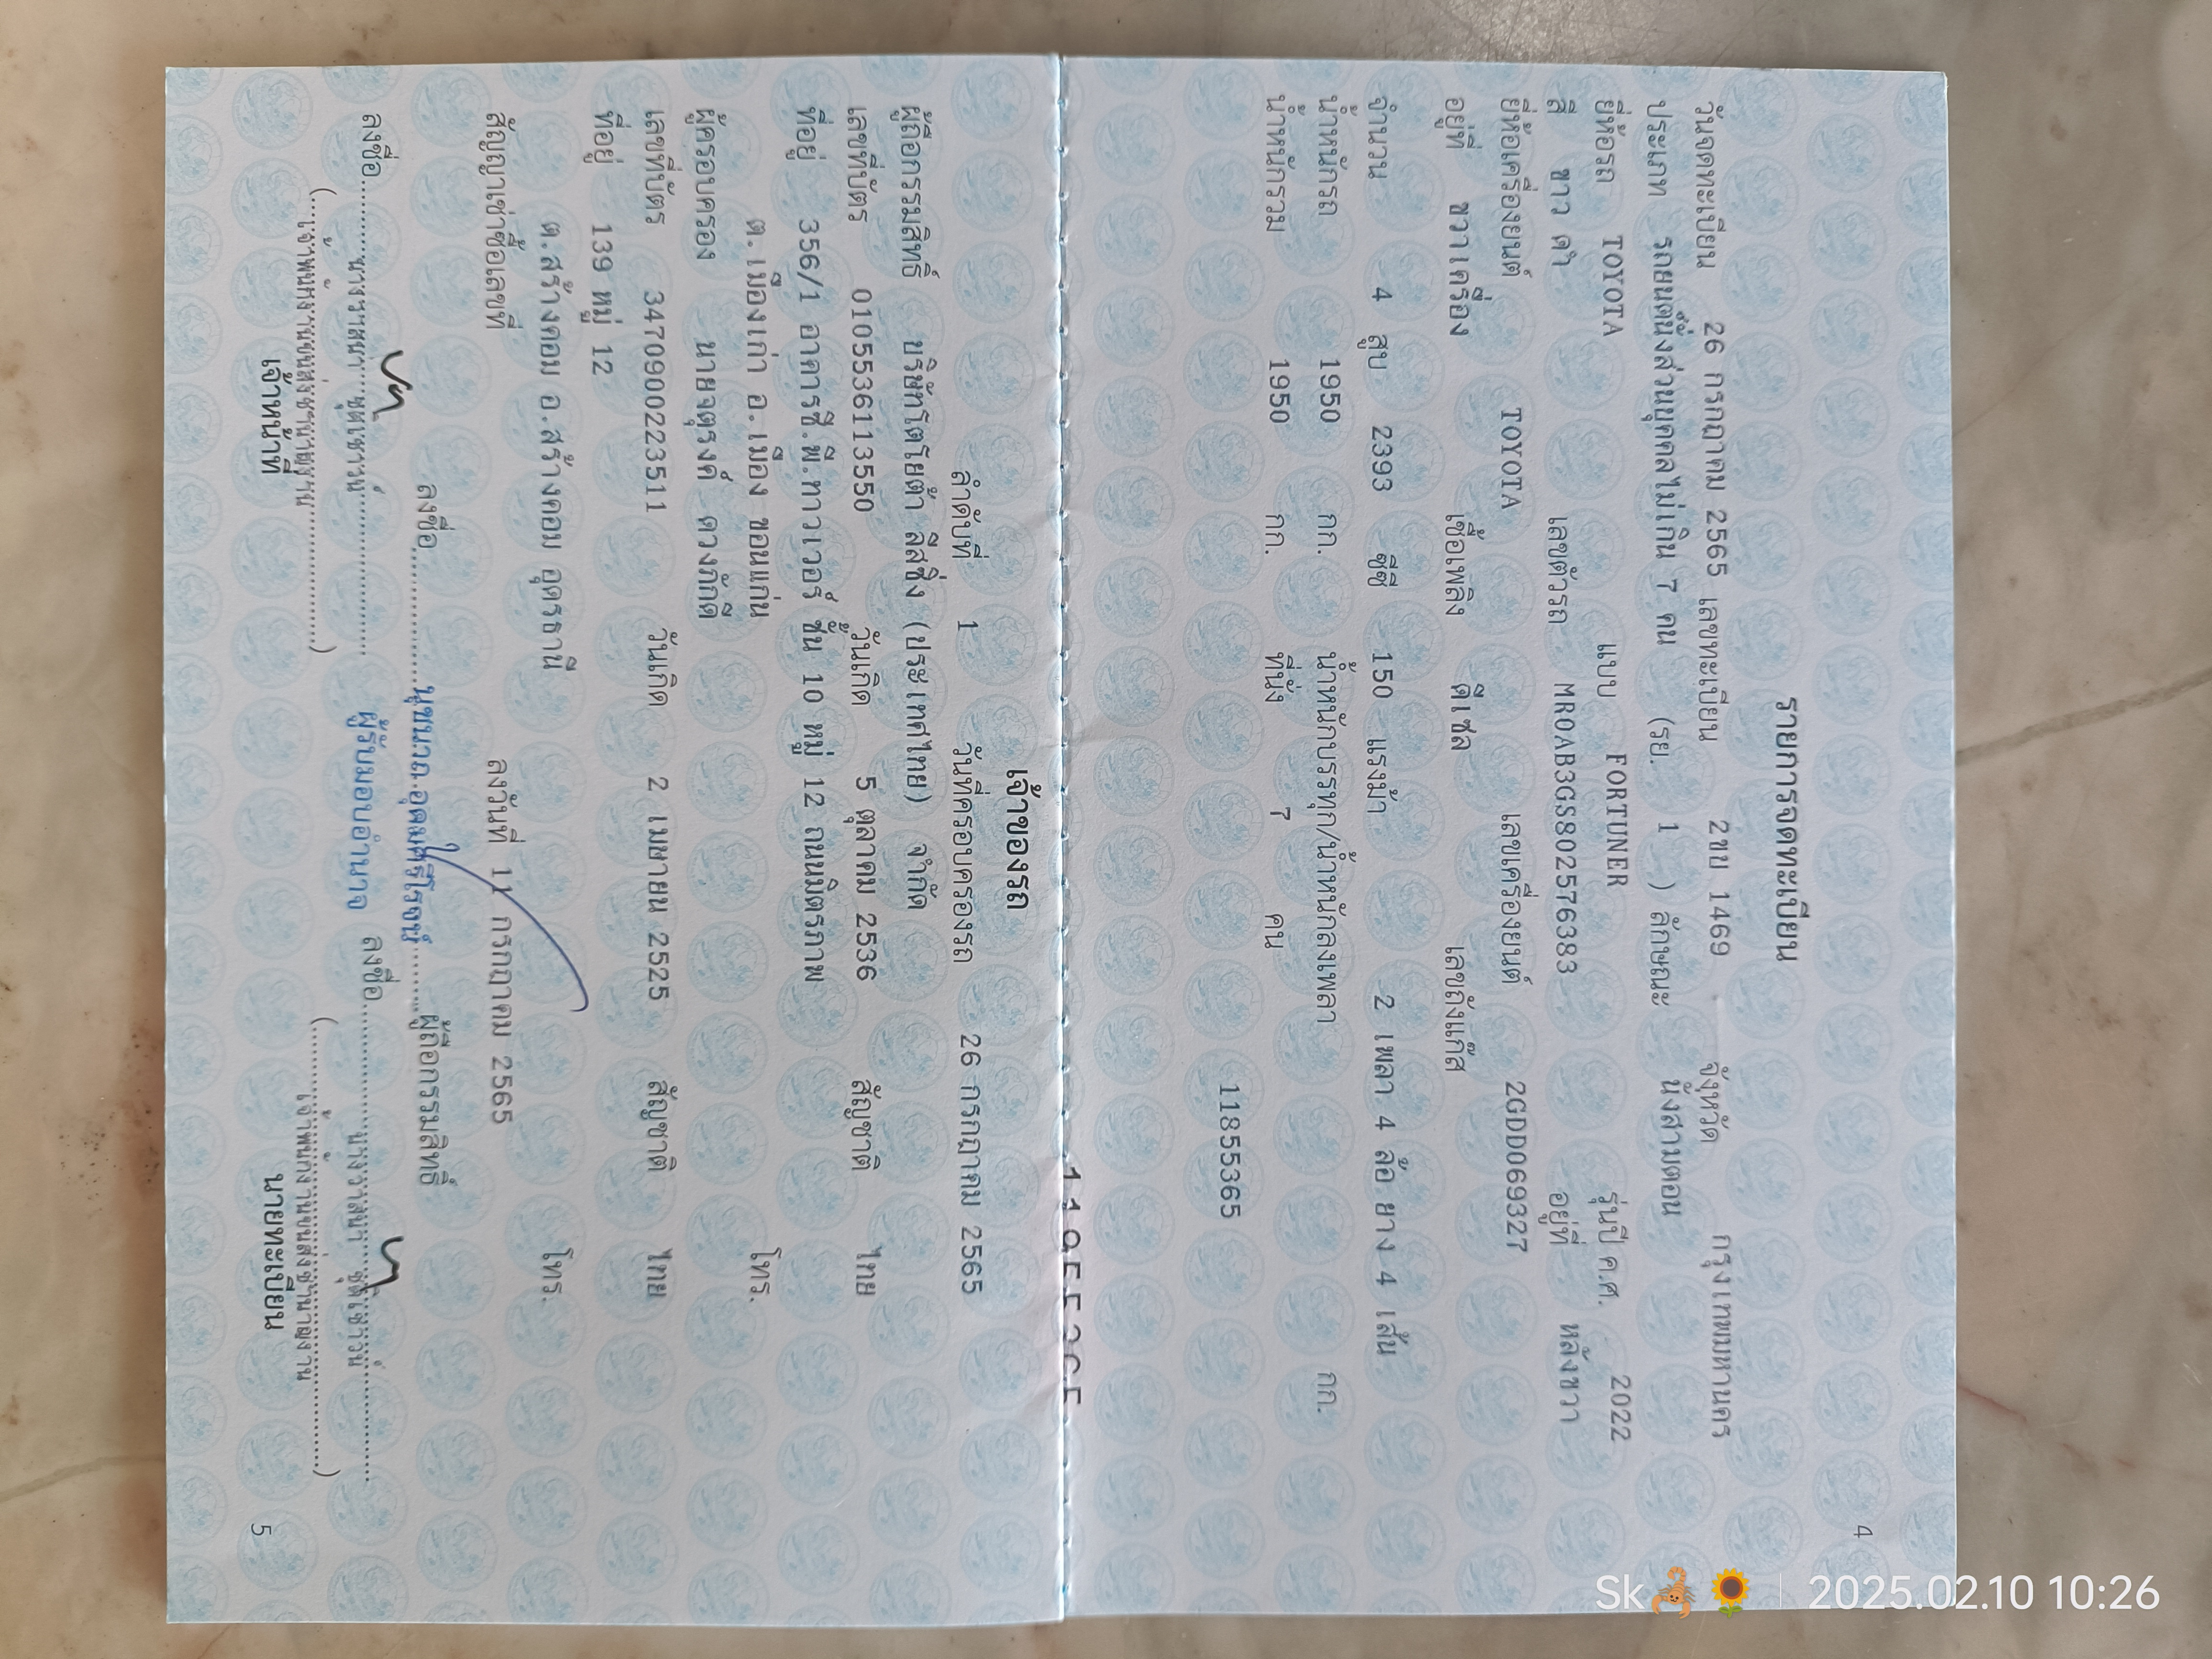 4
รายการจดทะเบียน
วันจดทะเบียน 26 กรกฎาคม 2565 เลขทะเบียน 2ขบ 1469 จังหวัด กรุงเทพมหานคร
ประเภท รถยนต์นั่งส่วนบุคคลไม่เกิน 7 คน (รย. 1 ) ลักษณะ นั่งสามตอน
ยี่ห้อรถ TOYOTA แบบ FORTUNER รุ่นปี ค.ศ. 2022
สี ขาว ดำ เลขตัวรถ MR0AB3GS802576383 อยู่ที่ หลังขวา
ยี่ห้อเครื่องยนต์ TOYOTA เลขเครื่องยนต์ 2GDD069327
อยู่ที่ ขวาเครื่อง เชื้อเพลิง ดีเซล เลขถังแก๊ส
จำนวน 4 สูบ 2393 ซีซี 150 แรงม้า 2 เพลา 4 ล้อ ยาง 4 เส้น
น้ำหนักรถ 1950 กก. น้ำหนักบรรทุก/น้ำหนักลงเพลา กก.
น้ำหนักรวม 1950 กก. ที่นั่ง 7 คน
11855365
11855365
เจ้าของรถ
ลำดับที่ 1 วันที่ครอบครองรถ 26 กรกฎาคม 2565
ผู้ถือกรรมสิทธิ์ บริษัทโตโยต้า ลีสซิ่ง (ประเทศไทย) จำกัด
เลขที่บัตร 0105536113550 วันเกิด 5 ตุลาคม 2536 สัญชาติ ไทย
ที่อยู่ 356/1 อาคารซี.พี.ทาวเวอร์ ชั้น 10 หมู่ 12 ถนนมิตรภาพ
ต.เมืองเก่า อ.เมือง ขอนแก่น โทร.
ผู้ครอบครอง นายจตุรงค์ ดวงภักดี
เลขที่บัตร 3470900223511 วันเกิด 2 เมษายน 2525 สัญชาติ ไทย
ที่อยู่ 139 หมู่ 12
ต.สร้างคอม อ.สร้างคอม อุดรธานี โทร.
สัญญาเช่าซื้อเลขที่ ลงวันที่ 11 กรกฎาคม 2565
ลงชื่อ ผู้ถือกรรมสิทธิ์
ผู้รับมอบอำนาจ
ลงชื่อ ลงชื่อ
(เจ้าพนักงานขนส่งชำนาญงาน) (เจ้าพนักงานขนส่งชำนาญงาน)
เจ้าหน้าที่ นายทะเบียน
5
Sk🦂🌻 | 2025.02.10 10:26